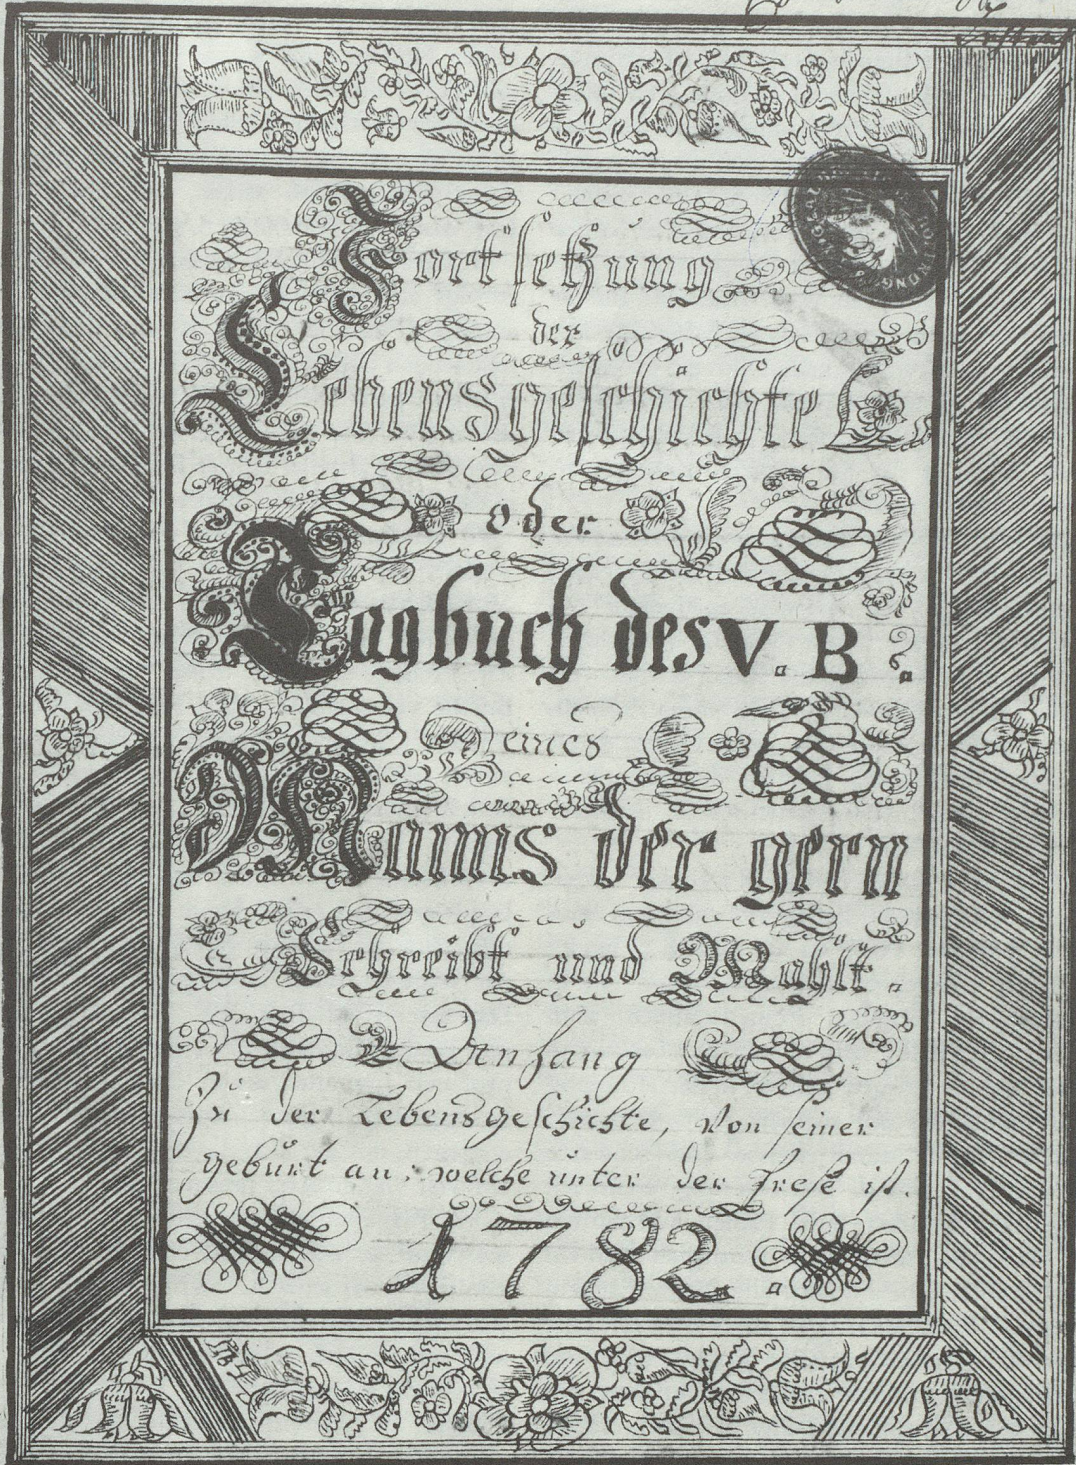 Fortsetzung
der
Lebensgeschichte
oder
Tagbuch des V. B.
eines
Manns der gern
Schreibt und Mahlt.
Anfang
Zu der Lebensgeschichte, von seiner
geburt an: welche unter der Prese ist.
1782.